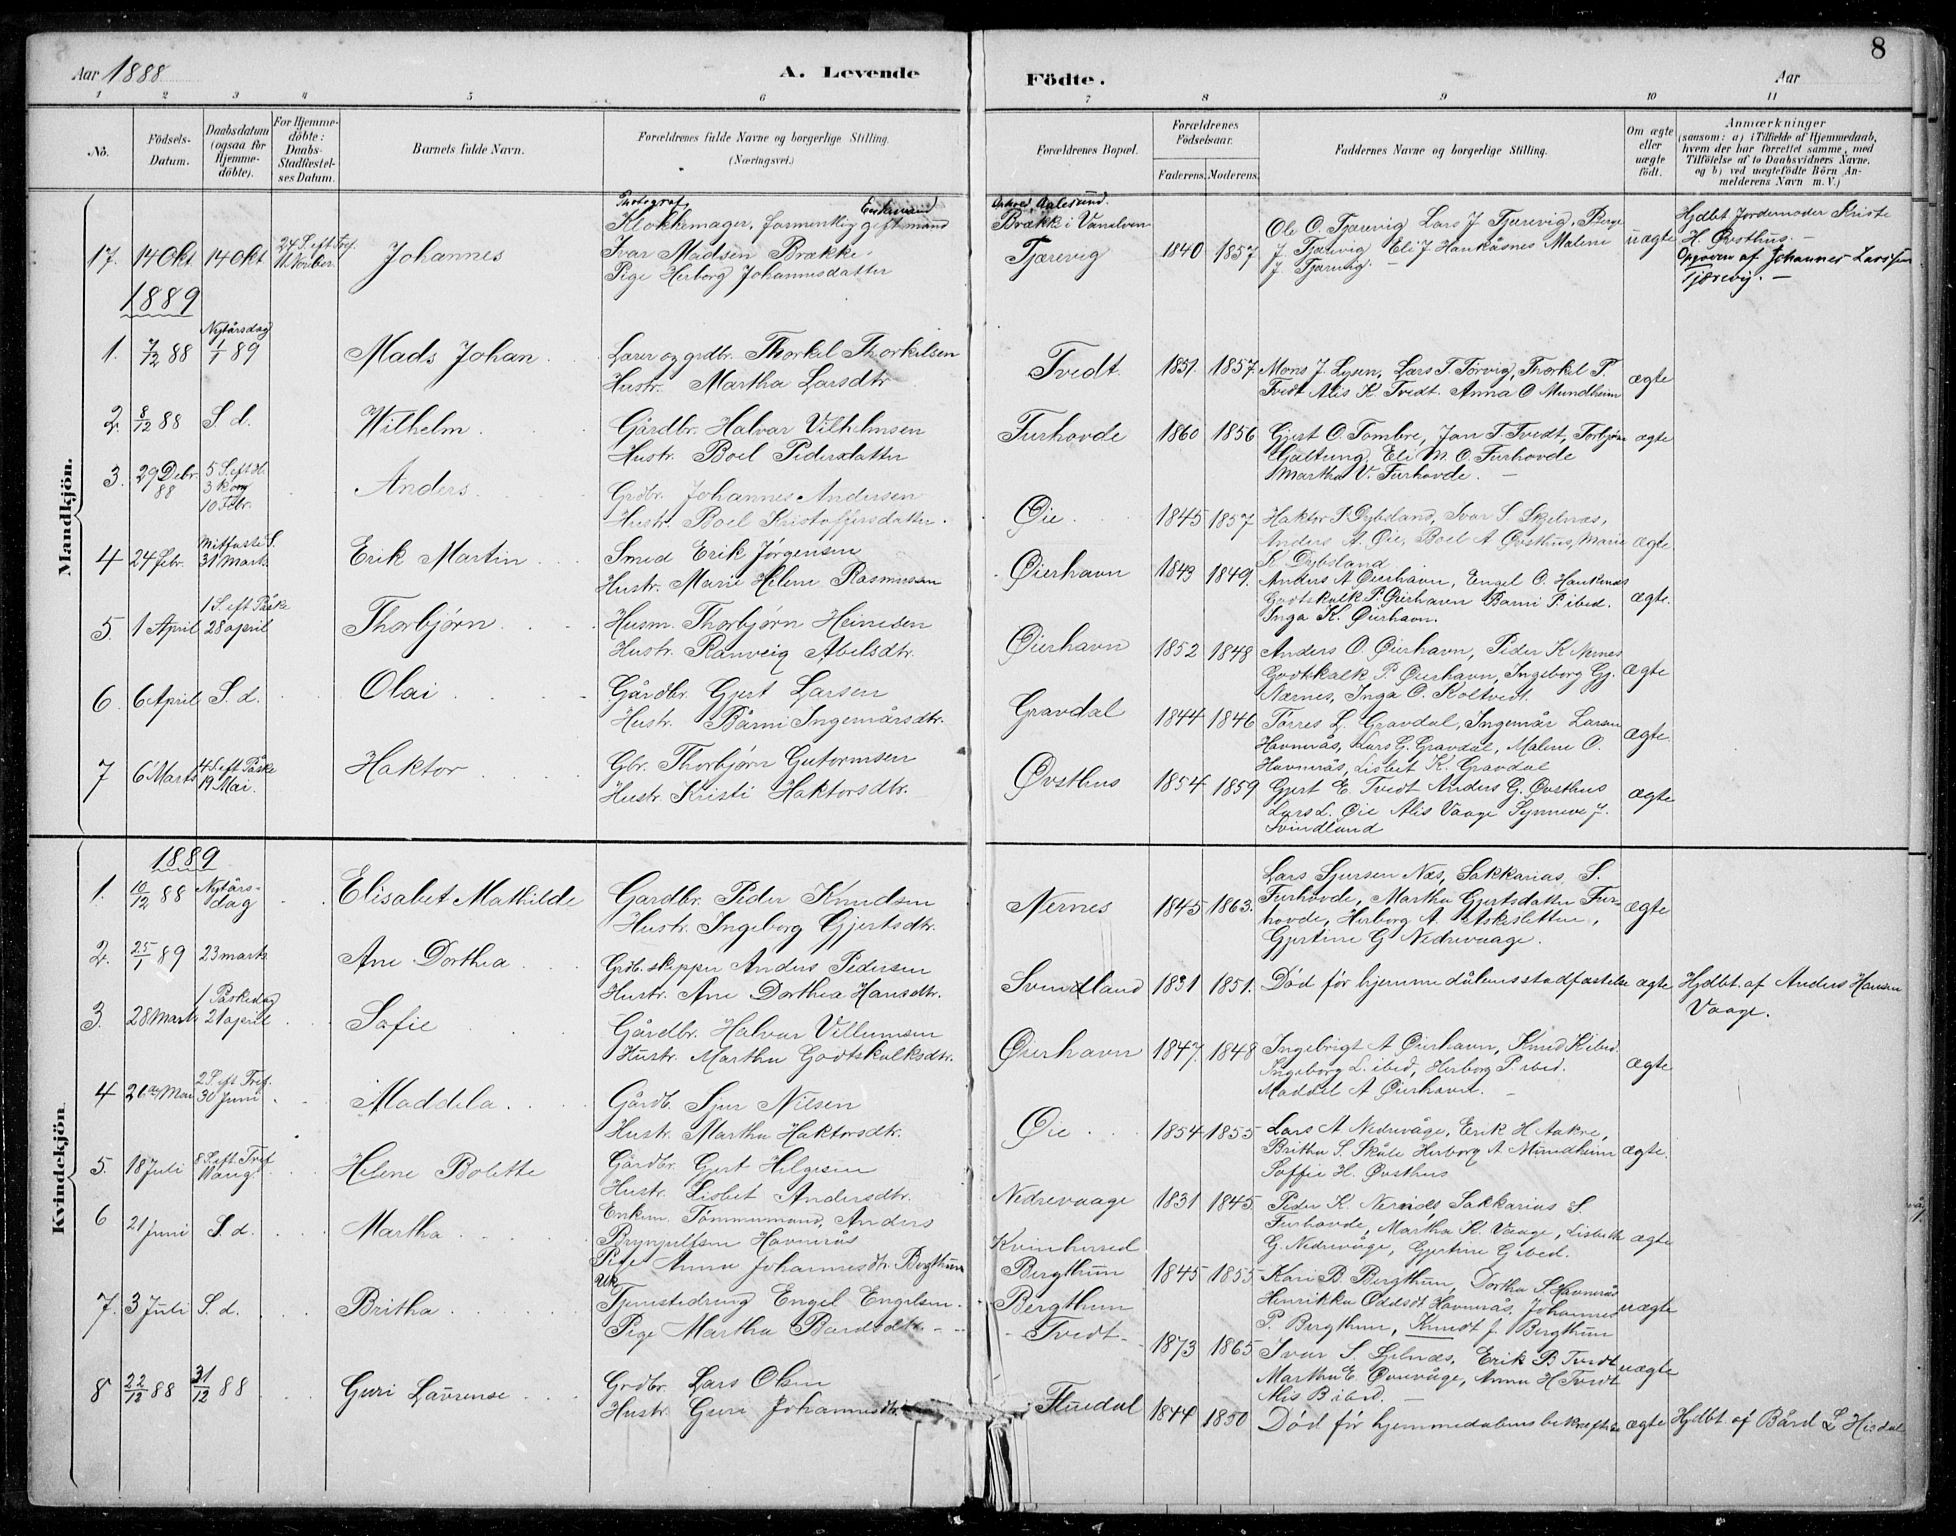 Aar 1888
A. Levende
Födte.
Aar
8
1 2 3 4 5 6 7 8 9 10 11
No.
Födsels-
Datum.
Daabsdatum
(ogsaa for
Hjemme-
döbte).
For Hjemme-
döbte:
Daabs-
Stadfæstel-
ses Datum.
Barnets fulde Navn.
Forældrenes fulde Navne og borgerlige Stilling.
(Næringsvei.)
Forældrenes Bopæl.
Forældrenes
Födselsaar.
Faderens. Moderens.
Faddernes Navne og borgerlige Stilling.
Om ægte
eller
uægte
födt.
Anmærkninger
(saasom: a) i Tilfælde af Hjemmedaab,
hvem der har forrettet samme, med
Tilföielse af to Daabsvidners Navne.
og b) ved uægtefödte Börn An-
melderens Navn m. V.)
Mandkjön.
17. 14 Okt 14 Okt 24 S. eft Tref. 11 Novber. Johannes
Photograf Enkemand
Klokkemager, formentlig gift mand
Ivar Madsen Brække.
Pige Herborg Johannesdatter
Ophold Aalesund.
Brække i Vanelven
Tjærevig 1840 1857
Ole O. Tjærevig Lars J. Tjærevig, Berge
J Tjærevig Eli J. Haukåsnes Malene
J Tjærevig. —
uægte
Hjdbt Jordemoder Kriste
H. Øvsthus. —
Opgiven af Johannes Larssen
Tjærevig. —
1889
1. 7/12 88 Nytårsdag 1/1 89 Mads Johan
Lærer og grdbr. Thorkel Thorkelsen
Hustr. Martha Larsdtr
Tvedt 1851 1857
Mons J. Lysen, Lars T. Torvig, Thorkel T.
Tvedt Alis K. Tvedt. Anna O Mundheim
ægte
2. 8/12 88 S. d. Wilhelm
Gårdbr. Halvar Vilhelmsen
Hustr. Boel Pedersdatter
Furhovde 1860 1856
Gjert O. Tombre, Jan T. Tvedt, Torbjørn
Hjeltung, Eli M. O. Furhovde
Martha V. Furhovde. —
ægte
3. 29 Debr. 88 5 S. eft H. 3 kong 10 Febr. Anders
Grdbr. Johannes Andersen
Hustr. Boel Kristoffersdatter.
Øie 1845 1857
Haktor P Dybsland, Ivar S. Skjelnæs,
Anders A. Øie, Boel A Øvsthus, Marie
K Dybsland
ægte
4 24 Febr. Mitfaste S. 31 Marts Erik Martin
Smed Erik Jørgensen
Hustr. Marie Helene Rasmussen
Øierhavn 1843 1849.
Anders A Øierhavn, Engel O. Haukenæs
Godtskalk P. Øierhavn Barni P. ibid.
Inga K. Øierhavn.
ægte.
5. 1 April 1 S. eft Påske 28 april Thorbjørn
Husm. Thorbjørn Heinesen
Hustr. Ranveig Abelsdtr.
Øierhavn 1852 1848
Anders O. Øierhavn, Peder K Nernes
Godtskalk P. Øierhavn, Ingeborg Gj.
Nærnes, Inga O. Koltvedt.
ægte
6. 6 April S. d. Olai
Gårdbr. Gjert Larsen
Hustr. Bårni Ingemårsdtr.
Gravdal 1844 1846
Torres L. Gravdal, Ingemår Larsen
Havnerås, Lars G. Gravdal, Malene O.
Havnerås, Lisbet K. Gravdal
ægte.
7 6 Marts 4 S eft Påske 19 Mai. Haktor
Gbr. Thorbjørn Gutormsen
Hustr. Kristi Haktorsdtr.
Øvsthus 1854 1859
Gjert E. Tvedt Anders G. Øvsthus
Lars L. Øie Alis Vaage Synneve J.
Svindland
ægte
Kvindekjön.
1889
1. 10/12 88 Nytårs-dag Elisabet Mathilde
Gardbr. Peder Knudsen
Hustr. Ingeborg Gjertsdtr.
Nernes 1845 1863.
Lars Sjursen Næs, Sakkarias S.
Furhovde, Martha Gjertsdatter Fur-
hovde, Herborg A. Askesletten,
Gjertine G Nedrevaage.
ægte
2. 25/1 89 23 marts Ane Dorthea
Grdb. skipper Anders Pedersen
Hustr. Ane Dorthea Hansdtr.
Svindland 1831 1851.
Død før hjemmedåbens stadfæstelse ægte
Hjdbt. af Anders Hansen
Vaage.
3. 28 Marts 1 Påskedag 21 april Sofie
Gårdbr. Halvar Villumsen
Hustr. Martha Godtskalksdtr.
Øierhavn 1847 1848
Ingebrigt A Øierhavn, Knud K ibid.
Ingeborg L. ibid, Herborg P. ibid.
Maddel A Øierhavn. —
ægte
4 2 S. eft Tref. 30 Juni Maddela
Gårdb. Sjur Nilsen
Hustr. Martha Haktorsdtr.
Øie 1854 1855
Lars A Nedrevåge, Erik H Aakre,
Britha S. Skåle Herborg A Mundheim
Soffie H. Øvsthus
ægte.
5 18 Juli 8 S. eft Tref 11 aug. Helene Bolette
Gårdbr. Gjert Helgesen
Hustr. Lisbet Andersdtr.
Nedrevaage 1831 1845.
Peder K. Nernes Sakkarias S
Furhovde, Martha K. Vaage, Lisbeth
G. Nedrevåge, Gjertine G ibed.
ægte
6 21 Juni S. d. Martha
Enkem. Tømmermand, Anders
Brynjulfsen Havnerås
Pige Anna Johannesdtr. Bergthun
Kvinherred
Bergthun 1845 1855
Kari B. Bergthun, Dorthea S. Havnerås
Henrikka Oddsdt Havnerås, Johannes
P. Bergthun, Knudt J. Bergthun
uægte
7. 3 Juli S. d. Britha
Uk
Tjenestedreng Engel Engelsen.
Pige Martha Bardsdtr. —
Bergthun
- Tvedt - 1873 1865
Ivar S. Skjelnæs, Erik B Tvedt
Martha E. Øvrevåge, Anna H Tvedt
Alis B ibid. —
uægte
8 22/12 88 31/12 88 Guri Lavrense
Grdbr. Lars Olsen
Hustr. Guri Johannesdtr
1844 1850
Død før hjemmedabens bekræftelse ægte
Hjdbt. af Bård L Hisdal